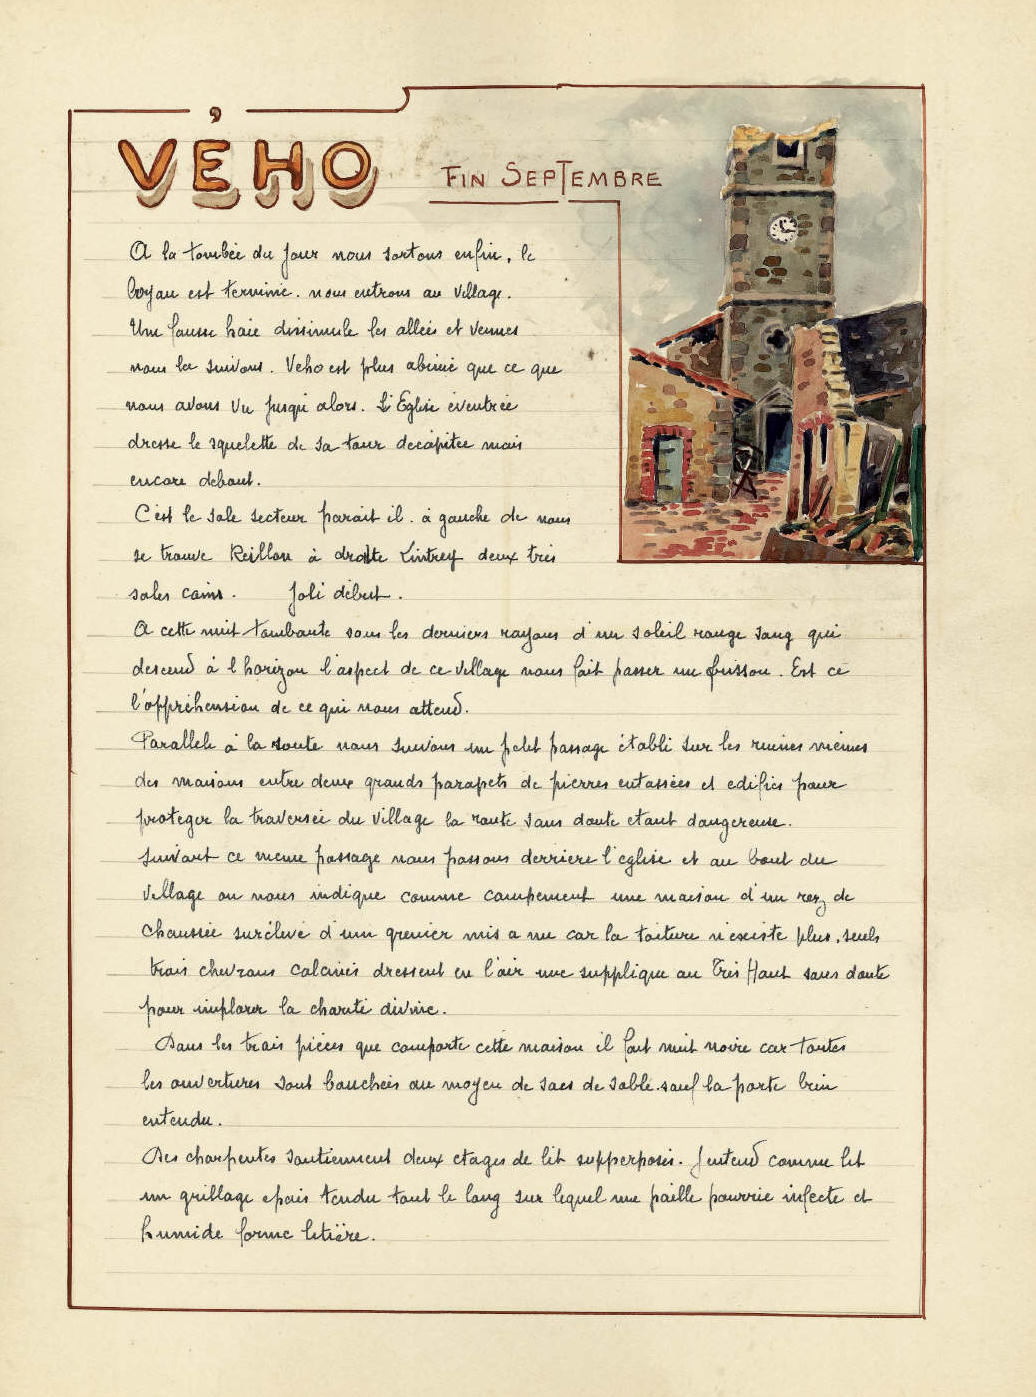 VÉHO
FIN SEPTEMBRE
A la tombée du jour nous sortons enfin, le
boyau est terminé. nous entrons au village.
Une fausse haie dissimule les allées et venues
nous la suivons. Veho est plus abimé que ce que
nous avons vu jusqu'alors. L'Eglise éventrée
dresse le squelette de sa tour decapitée mais
encore debout.
C'est le sale secteur parait il. à gauche de nous
se trouve Reillon à droite Leintrey deux très
sales coins. Joli début.
A cette nuit tombante sous les derniers rayons d'un soleil rouge sang qui
descend à l horizon l'aspect de ce village nous fait passer un frisson. Est ce
l'appréhension de ce qui nous attend.
Parallele à la route nous suivons un petit passage établi sur les ruines mêmes
des maisons entre deux grands parapets de pierres entassées et edifiés pour
proteger la traversée du village la route sans doute etant dangereuse.
Suivant ce meme passage nous passons derriere l'eglise et au bout du
village on nous indique comme campement une maison d'un rez de
chaussée surélevé d'un grenier mis a nu car la toiture n'existe plus, seuls
trois chevrons calcinés dressent en l'air une supplique au Très Haut sans doute
pour implorer la charité divine.
Dans les trois pièces que comporte cette maison il fait nuit noire car toutes
les ouvertures sont bouchées au moyen de sacs de sable. sauf la porte bien
entendu.
Des charpentes soutiennent deux etages de lit supperposés. J'entend comme lit
un grillage epais tendu tout le long sur lequel une paille pourrie infecte et
humide forme litière.